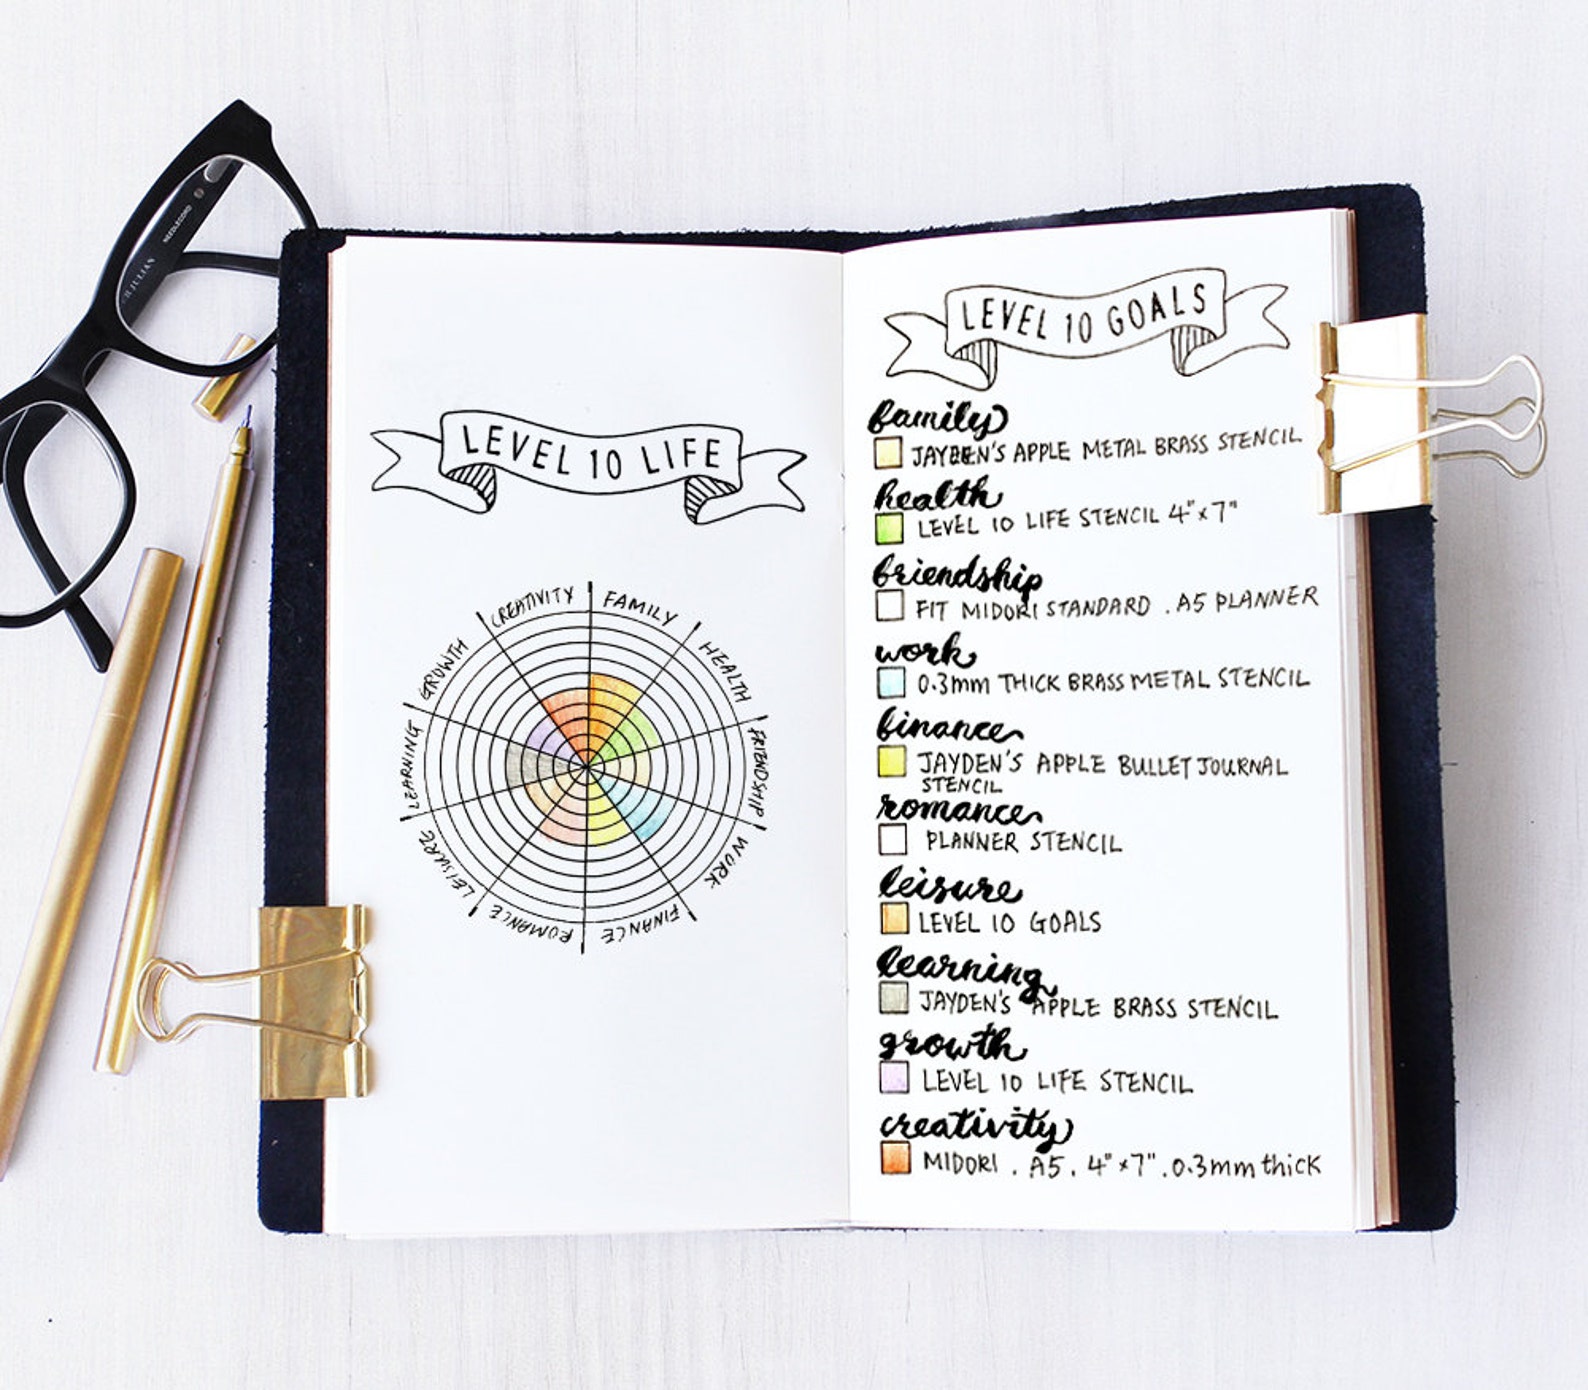 LEVEL 10 LIFE
CREATIVITY
FAMILY
HEALTH
FRIENDSHIP
WORK
FINANCE
ROMANCE
LEISURE
LEARNING
GROWTH
LEVEL 10 GOALS
family
JAYDEN'S APPLE METAL BRASS STENCIL
health
LEVEL 10 LIFE STENCIL 4" x 7"
friendship
FIT MIDORI STANDARD . A5 PLANNER
work
0.3mm THICK BRASS METAL STENCIL
finance
JAYDEN'S APPLE BULLET JOURNAL
STENCIL
romance
PLANNER STENCIL
leisure
LEVEL 10 GOALS
learning
JAYDEN'S APPLE BRASS STENCIL
growth
LEVEL 10 LIFE STENCIL
creativity
MIDORI . A5 . 4" x 7" . 0.3mm thick